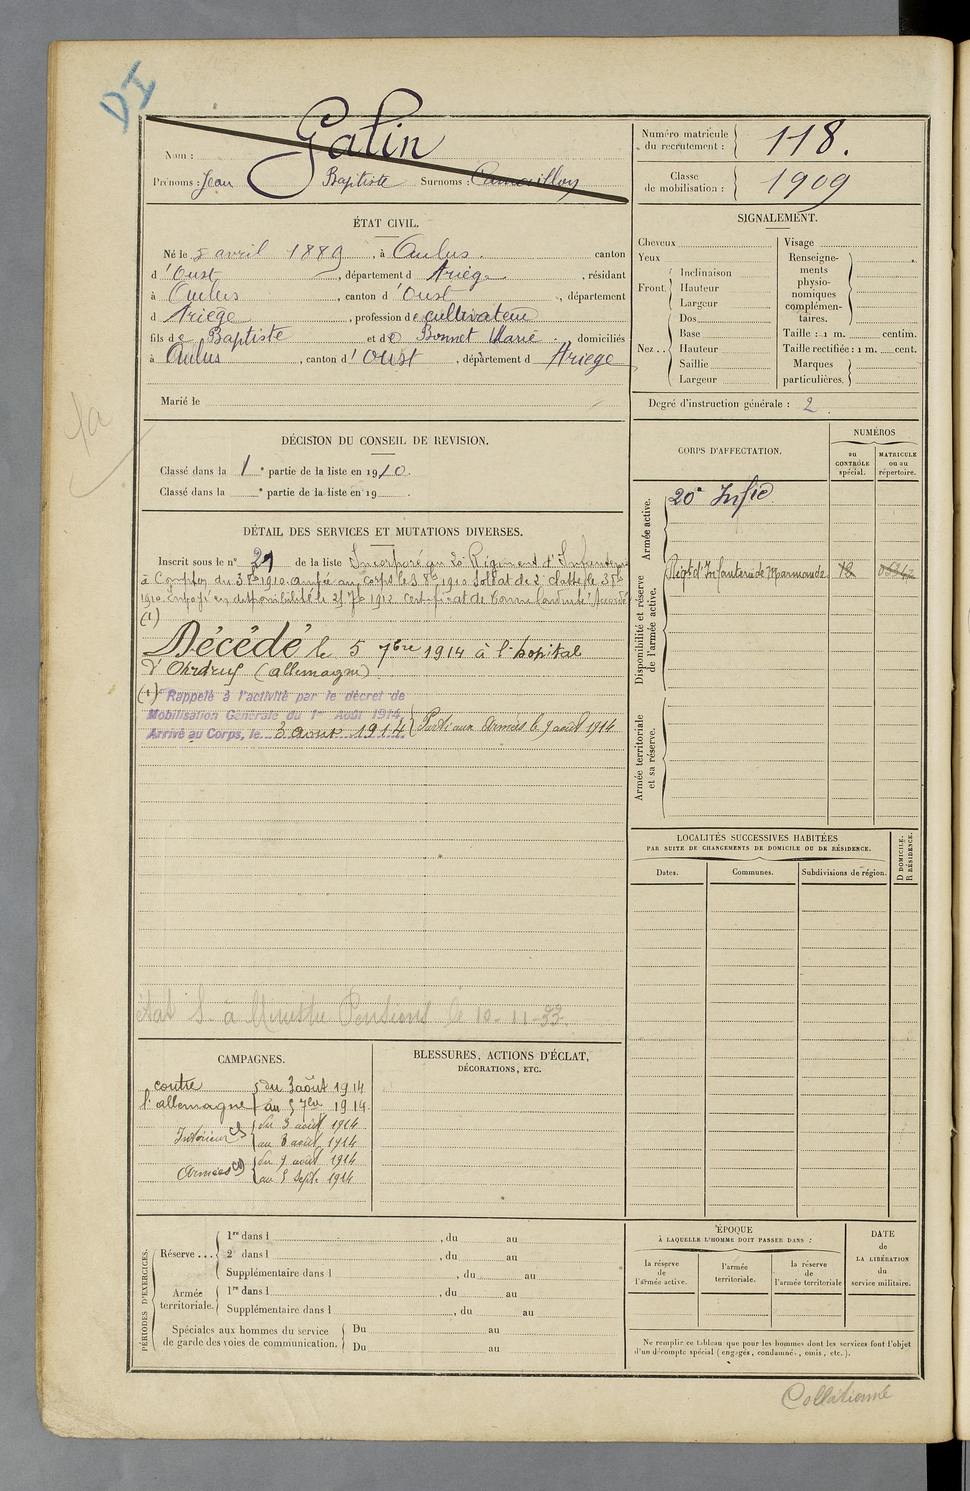 DI
Nom : Galin
Prénoms : Jean Baptiste Surnoms : Camouillou
Numéro matricule du recrutement : 118.
Classe de mobilisation : 1909
ÉTAT CIVIL.
Né le 5 avril 1889, à Aulus. canton
d'Oust, département d Ariège, résidant
à Aulus, canton d'Oust, département
d Ariège, profession de cultivateur
fils de Baptiste et de Bonnet Marie. domiciliés
à Aulus, canton d'Oust, département d Ariège
Marié le
SIGNALEMENT.
Cheveux
Yeux
Front. Inclinaison
Hauteur
Largeur
Nez .. Dos
Base
Hauteur
Saillie
Largeur
Visage
Renseignements physionomiques complémentaires.
Taille : 1 m. centim.
Taille rectifiée : 1 m. cent.
Marques particulières.
Degré d'instruction générale : 2.
DÉCISION DU CONSEIL DE REVISION.
Classé dans la 1e partie de la liste en 1910.
Classé dans la e partie de la liste en 19 .
DÉTAIL DES SERVICES ET MUTATIONS DIVERSES.
Inscrit sous le n° 29 de la liste Incorporé au 20e Régiment d'Infanterie
à Compter du 3 8bre 1910. arrivé au corps le 3 8bre 1910 Soldat de 2e classe le 3 8bre
1910. envoyé en disponibilité le 25 7bre 1912 Certificat de bonne conduite "Accordé"
(1)
Décédé le 5 7bre 1914 à l'hopital
d'Ohrdruf (allemagne)
(1) Rappelé à l'activité par le décret de
Mobilisation Générale du 1er Août 1914,
Arrivé au Corps, le 3 aout 1914 Parti aux Armées le 9 août 1914
Etat S. à Ministre Pensions le 10-11-33.
CORPS D'AFFECTATION.
NUMÉROS
au CONTRÔLE spécial.
MATRICULE ou au répertoire.
Armée active.
20e Infie
Disponibilité et réserve de l'armée active.
Régt d'Infanterie de Marmande
Armée territoriale et sa réserve.
LOCALITÉS SUCCESSIVES HABITÉES
PAR SUITE DE CHANGEMENTS DE DOMICILE OU DE RÉSIDENCE.
D DOMICILE.
R RÉSIDENCE.
Dates.
Communes.
Subdivisions de région.
CAMPAGNES.
contre du 3 août 1914
l'allemagne au 5 7bre 1914.
Intérieur du 3 août 1914
au 8 août 1914
Armées du 9 août 1914
au 5 Septe 1914
BLESSURES, ACTIONS D'ÉCLAT,
DÉCORATIONS, ETC.
PÉRIODES D'EXERCICES.
Réserve ... 1re dans l , du au
2e dans l , du au
Supplémentaire dans l , du au
Armée territoriale. 1re dans l , du au
Supplémentaire dans l , du au
Spéciales aux hommes du service de garde des voies de communication. Du au
Du au
ÉPOQUE
À LAQUELLE L'HOMME DOIT PASSER DANS :
la réserve de l'armée active.
l'armée territoriale.
la réserve de l'armée territoriale
DATE de LA LIBÉRATION du service militaire.
Ne remplir ce tableau que pour les hommes dont les services font l'objet
d'un décompte spécial (engagés, condamnés, omis, etc.).
Collationné